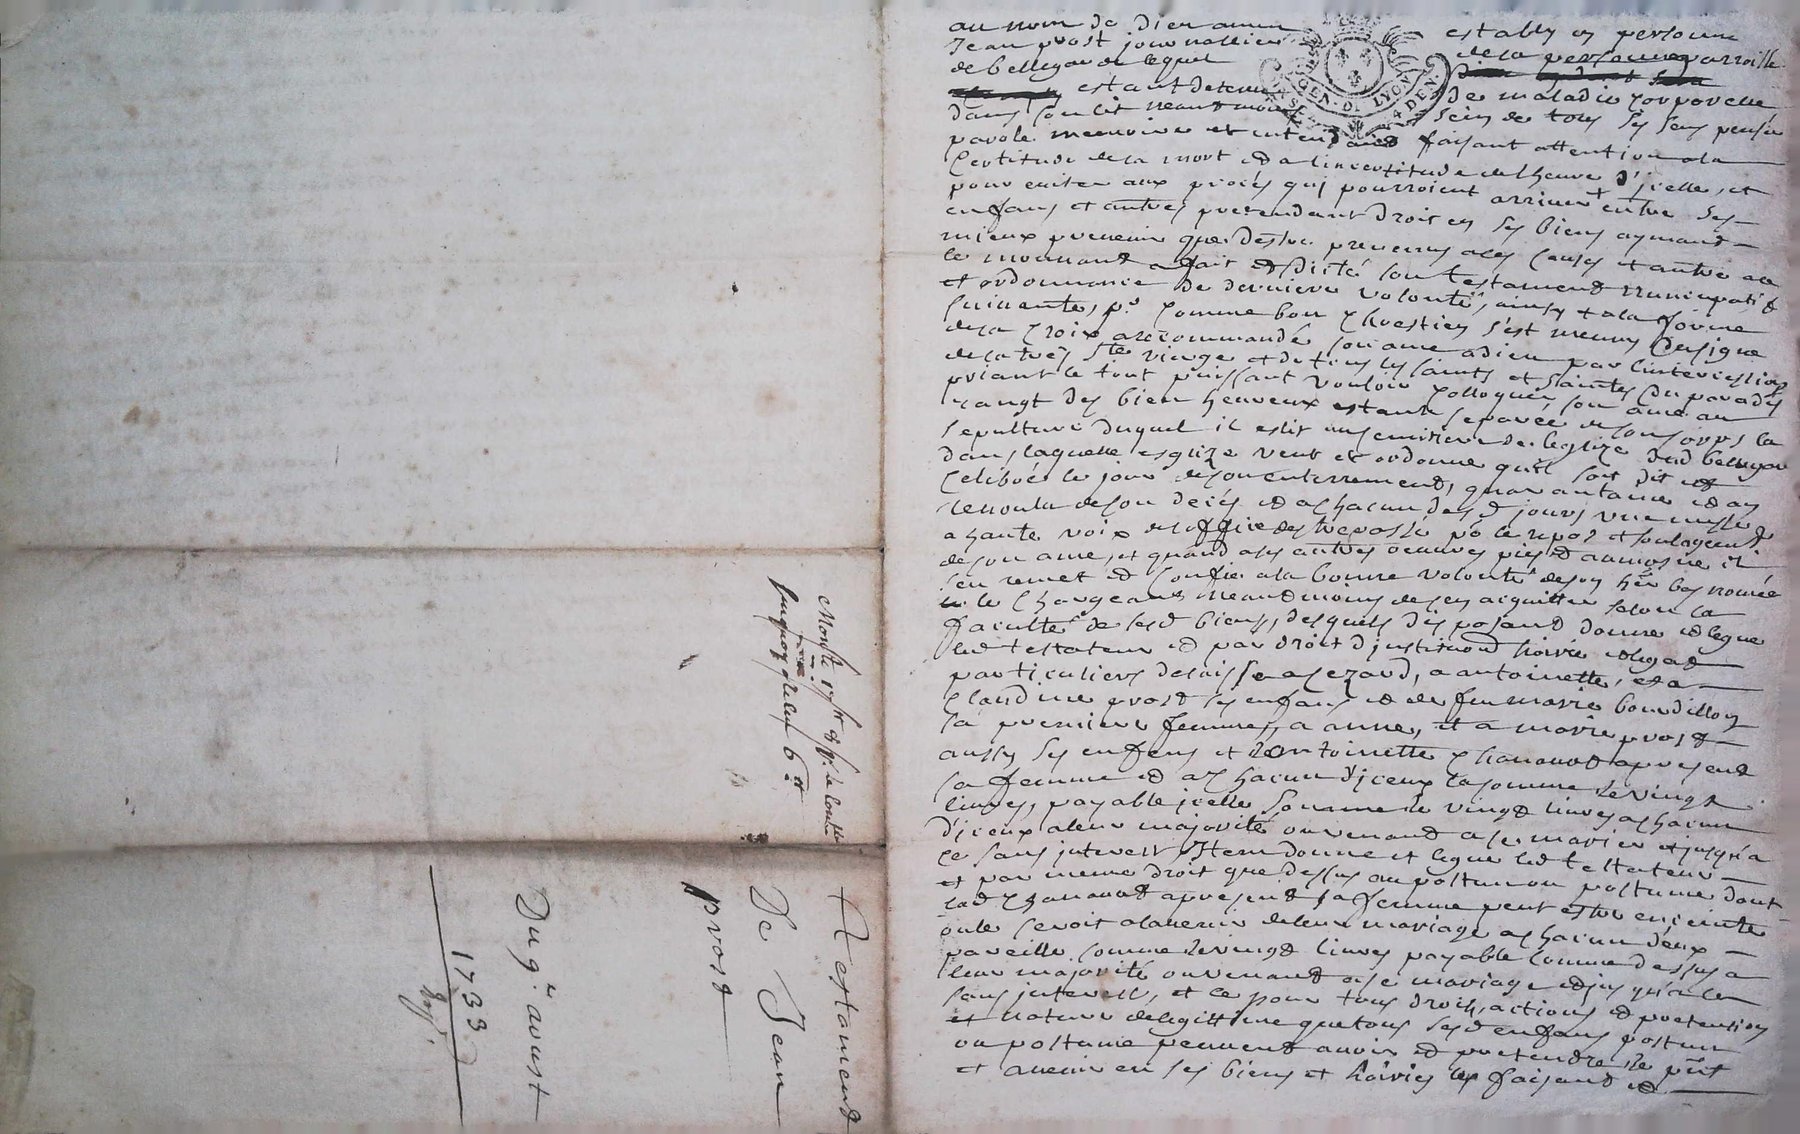 au nom de dieu amen establi en personne
Jean prost journallier de la parroisse
de bellegarde lequel
estant detenu de maladie corporelle
dans son lit neantmoins sein de tous ses sens pensée
parole memoire et entend faisant attention a la
certitude de la mort et a lincertitude de lheure d'jcelle, et
pour eviter aux procés quj pourroient arriver entre ses
enfans et autres pretendant droit en ses biens aymant
mieux prevenir que destre prevenus a ces causes et autres
le mouvant a fait et dicté son testament nuncupatif
et ordonnance de derniere volonté, ainsy et a la forme
suivante, po comme bon chrestien s'est muny du signe
de la croix a recommandé son ame a dieu par lintercession
de la tres ste vierge et de tous les saints et saintes du paradis
priant le tout puissant vouloir colloquer son ame au
rangt des bien heureux estant separée de son corps la
sepulture duquel il eslit au cemitiere de leglize dud bellegarde
dans laquelle esglize veut et ordonne quil soit dit et
celebré le jour de son enterrement, quarantaine et an
revoulu de son decés et a chacun desd jours une messe
a haute voix de loffice des trepassé po le repos et soulagemt
de son ame, et quand a ses autres oeuvres pies et aumosne il
s'en remet et confie a la bonne volonté de son her bas nomée
le chargeant neantmoins de s'en acquitter selon la
faculté de sesd biens, desquels disposant donne et legue
led testateur et par droit d'justitu͠on hoirie et legat
particuliers delaisse a Cezard, a antoinette, et a
Claudine prost ses enfans et de feu marie bourdillon
sa premiere femme, a anne, et a marie prost
aussy ses enfens et d'antoinette chavanot a present
sa femme et a chacun d'jceux la somme de vingt
livres, payable jcelle somme de vingt livres a chacun
d'jceux a leur majorité ou venant a se marier et jusqu'a
ce sans jnterest, Jtem donne et legue led testateur
et par meme droit que dessus au postume ou postume dont
lad chavanot a present sa femme peut estre enceinte
ou le seroit a lavenir de leur mariage a chacun deux
pareille somme de vingt livres payable comme dessus a
leur majorité ou venant a se mariage et jusqu'a ce
sans jnterest, et ce pour tous droits, actions et pretentions
et nature de legittime que tous sesd enfans postume
ou postume peuvent avoir et pretendre de put
et avenir en ses biens et hoiries les faisant et
GEN. DE LYON
4 DEN.
Testament
De Jean
prost
Du 9e avust
1733